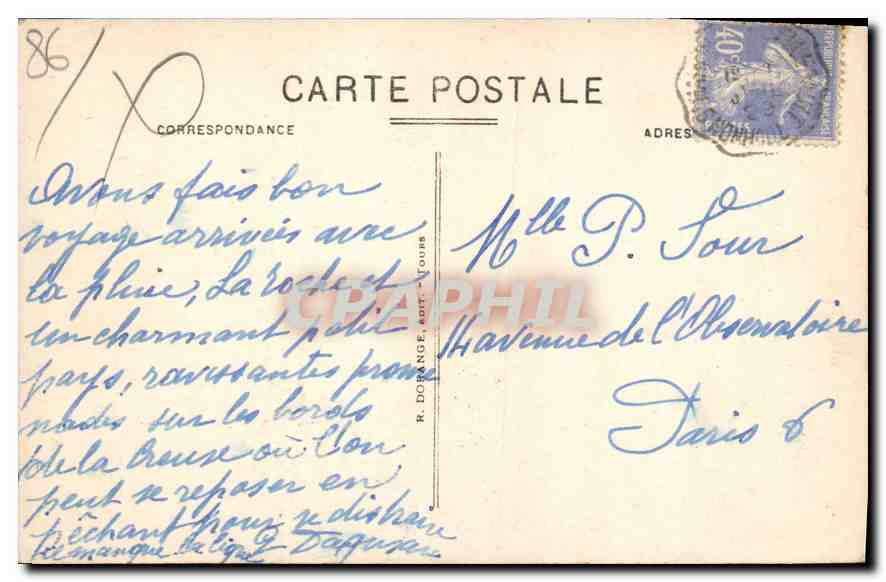 86
CARTE POSTALE
CORRESPONDANCE
ADRES
40c
Avons fais bon
voyage arrivées avec
la pluie, La roche est
un charmant petit
pays, ravissantes prome
nades sur les bords
de la Creuse où l'on
peut se reposer en
pêchant pour se distraire
il manque la ligne
R. DORANGE, EDIT. - TOURS
Mlle P. Sour
14 avenue de l'Observatoire
Paris 6
CPAPHIL